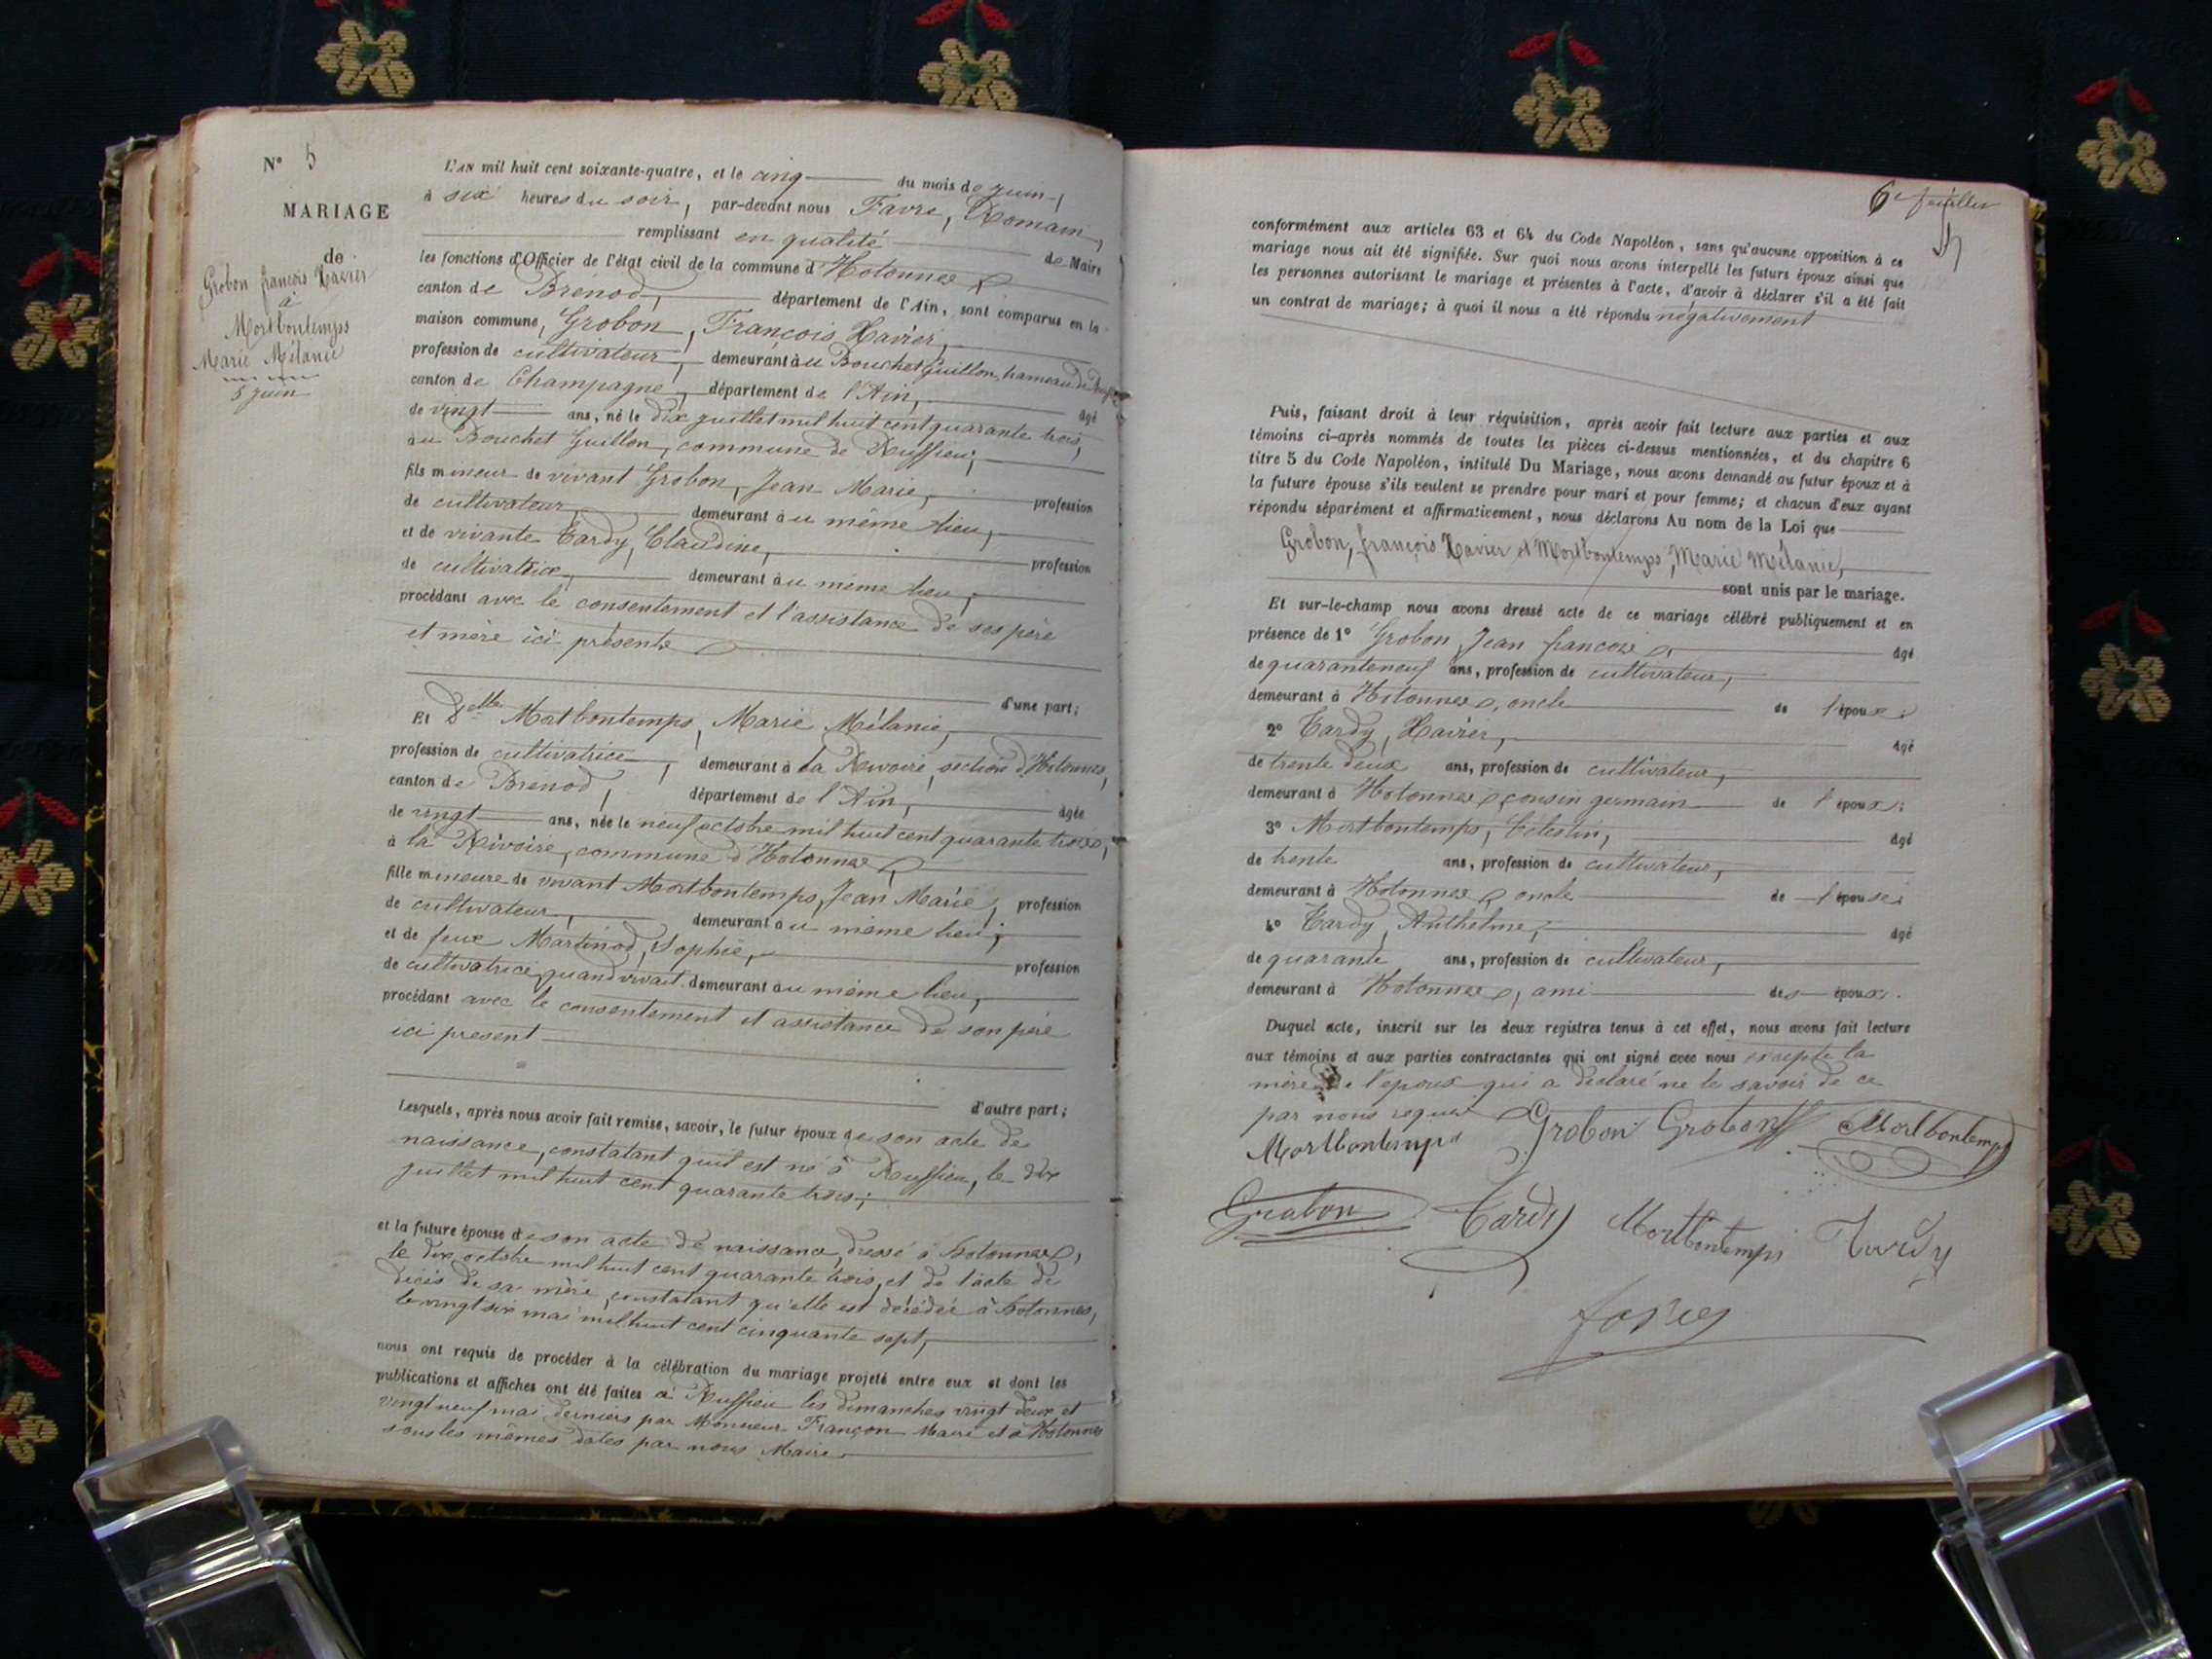 N° 5
MARIAGE
de
Grobon françois Xavier
à
Mortbontemps
Marie Mélanie
5 juin
L'AN mil huit cent soixante-quatre, et le cinq du mois de juin,
à six heures du soir, par-devant nous Favre, Romain,
remplissant en qualité de Maire
les fonctions d'Officier de l'état civil de la commune d'Hotonnes
canton de Brénod, département de l'Ain, sont comparus en la
maison commune, Grobon, François Xavier,
profession de cultivateur, demeurant au Bouchet Guillon, hameau de
canton de Champagne, département de l'Ain, âgé
de vingt ans, né le dix juillet mil huit cent quarante trois,
au Bouchet Guillon, commune de Ruffieu,
fils mineur de vivant Grobon, Jean Marie, profession
de cultivateur, demeurant au même lieu,
et de vivante Tardy, Claudine, profession
de cultivatrice, demeurant au même lieu,
procédant avec le consentement et l'assistance de ses père
et mère ici présents
d'une part;
Et Delle Matbontemps, Marie Mélanie,
profession de cultivatrice, demeurant à la Rivoire, section d'Hotonnes,
canton de Brénod, département de l'Ain, âgée
de vingt ans, née le neuf octobre mil huit cent quarante trois,
à la Rivoire, commune d'Hotonnes
fille mineure de vivant Mortbontemps, Jean Marie, profession
de cultivateur, demeurant au même lieu;
et de feue Martinod, Sophie, profession
de cultivatrice quand vivait demeurant au même lieu,
procédant avec le consentement et assistance de son père
ici present
d'autre part;
Lesquels, après nous avoir fait remise, savoir, le futur époux de son acte de
naissance, constatant qu'il est né à Ruffieu, le dix
juillet mil huit cent quarante trois;
et la future épouse de son acte de naissance, dressé à Hotonnes,
le dix octobre mil huit cent quarante trois, et de l'acte de
décès de sa mère, constatant qu'elle est décédée à Hotonnes,
le vingt six mai mil huit cent cinquante sept,
nous ont requis de procéder à la célébration du mariage projeté entre eux et dont les
publications et affiches ont été faites à Ruffieu les dimanches vingt deux et
vingt neuf mai derniers par Monsieur Françon Maire et à Hotonnes
sous les mêmes dates par nous Maire
6e feuillet
conformément aux articles 63 et 64 du Code Napoléon, sans qu'aucune opposition à ce
mariage nous ait été signifiée. Sur quoi nous avons interpellé les futurs époux ainsi que
les personnes autorisant le mariage et présentes à l'acte, d'avoir à déclarer s'il a été fait
un contrat de mariage; à quoi il nous a été répondu négativement
Puis, faisant droit à leur réquisition, après avoir fait lecture aux parties et aux
témoins ci-après nommés de toutes les pièces ci-dessus mentionnées, et du chapitre 6
titre 5 du Code Napoléon, intitulé Du Mariage, nous avons demandé au futur époux et à
la future épouse s'ils veulent se prendre pour mari et pour femme; et chacun d'eux ayant
répondu séparément et affirmativement, nous déclarons Au nom de la Loi que
Grobon, françois Xavier et Mortbontemps, Marie Mélanie,
sont unis par le mariage.
Et sur-le-champ nous avons dressé acte de ce mariage célébré publiquement et en
présence de 1° Grobon, Jean françois, âgé
de quarante neuf ans, profession de cultivateur,
demeurant à Hotonnes, oncle de l'époux;
2° Tardy, Xavier, âgé
de trente deux ans, profession de cultivateur,
demeurant à Hotonnes, cousin germain de l'époux;
3° Mortbontemps, Célestin, âgé
de trente ans, profession de cultivateur,
demeurant à Hotonnes, oncle de l'épouse;
4° Tardy, Anthelme, âgé
de quarante ans, profession de cultivateur,
demeurant à Hotonnes, ami des époux.
Duquel acte, inscrit sur les deux registres tenus à cet effet, nous avons fait lecture
aux témoins et aux parties contractantes qui ont signé avec nous excepté la
mère de l'époux qui a déclaré ne le savoir de ce
par nous requis
Mortbontemps Grobon Grobon Mortbontemps
Grobon Tardy Mortbontemps Tardy
favre